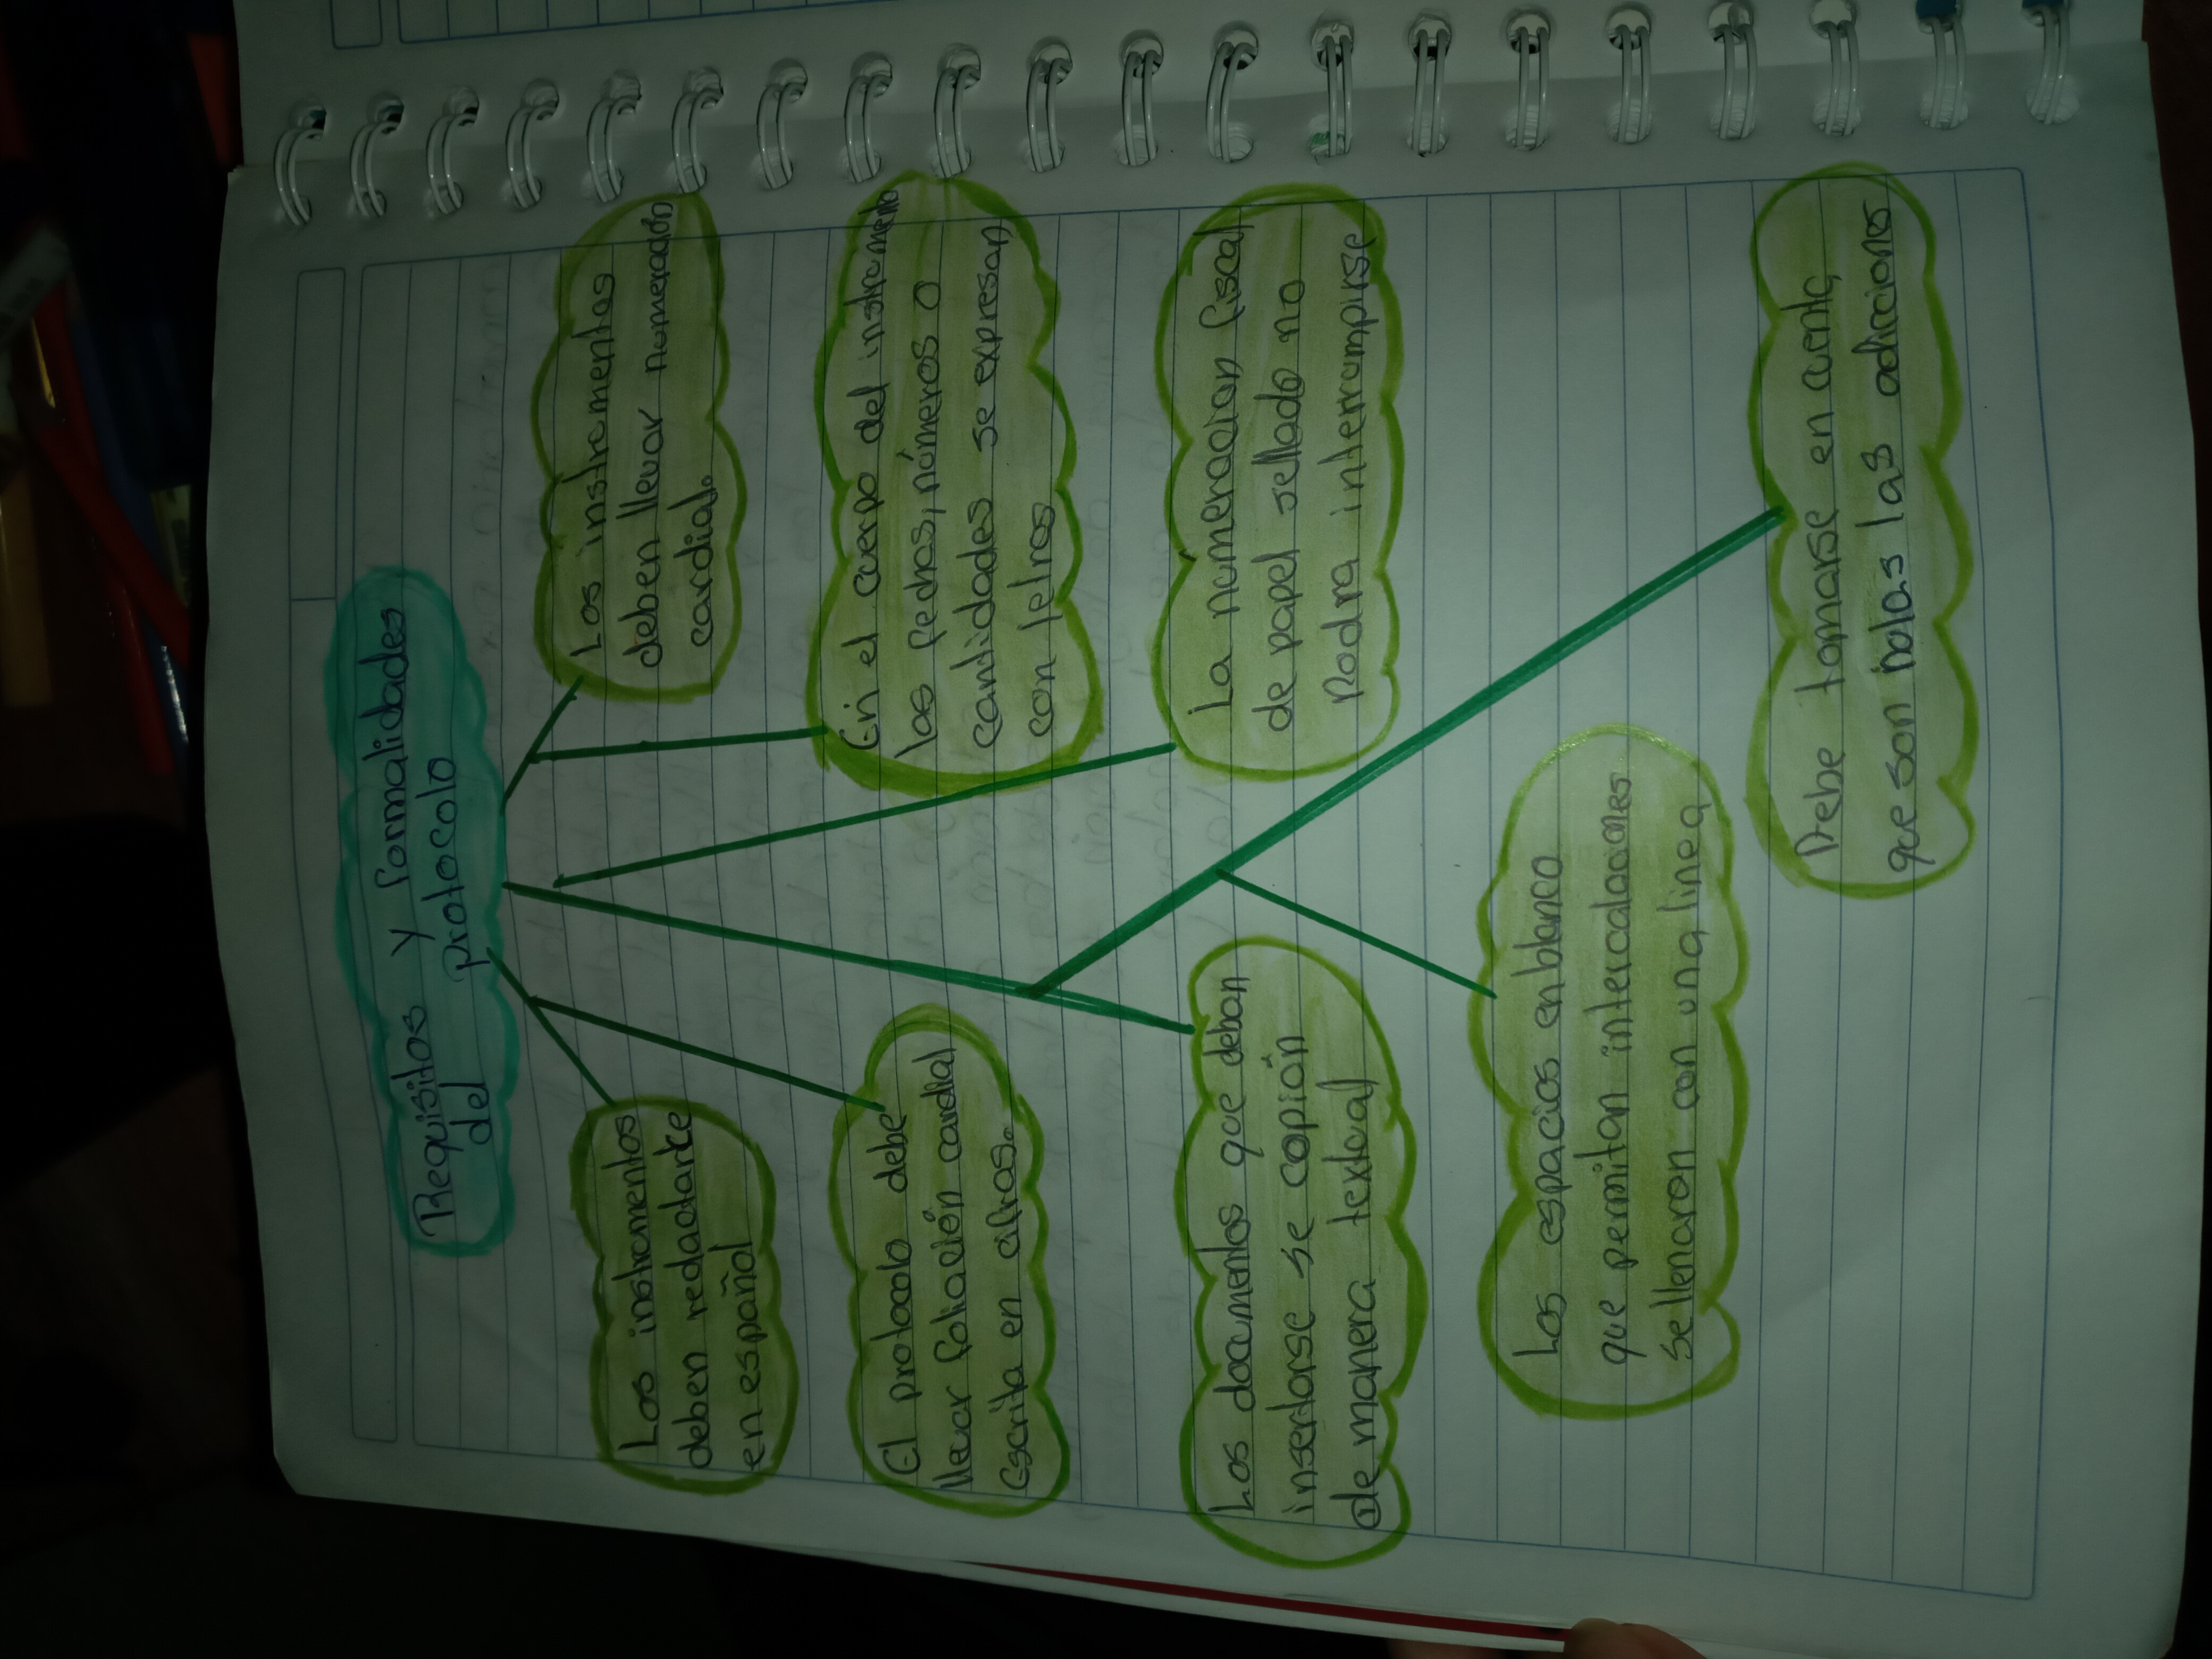 Requisitos y formalidades
del protocolo
Los instrumentos
deben redactarte
en español
Los instrumentos
deben llevar numeración
cardial.
El protocolo debe
llevar foliación cardial
Escrita en cifras.
En el cuerpo del instrumento
las fechas, números o
cantidades se expresan
con letras
Los documentos que deban
insertarse se copión
de manera textual
La numeracion fiscal
de papel sellado no
Podra interrumpirse
Los espacios en blanco
que permitan intercalaciones
se llenaron con una linea
Debe tomarse en cuenta
que son nolas las adicciones